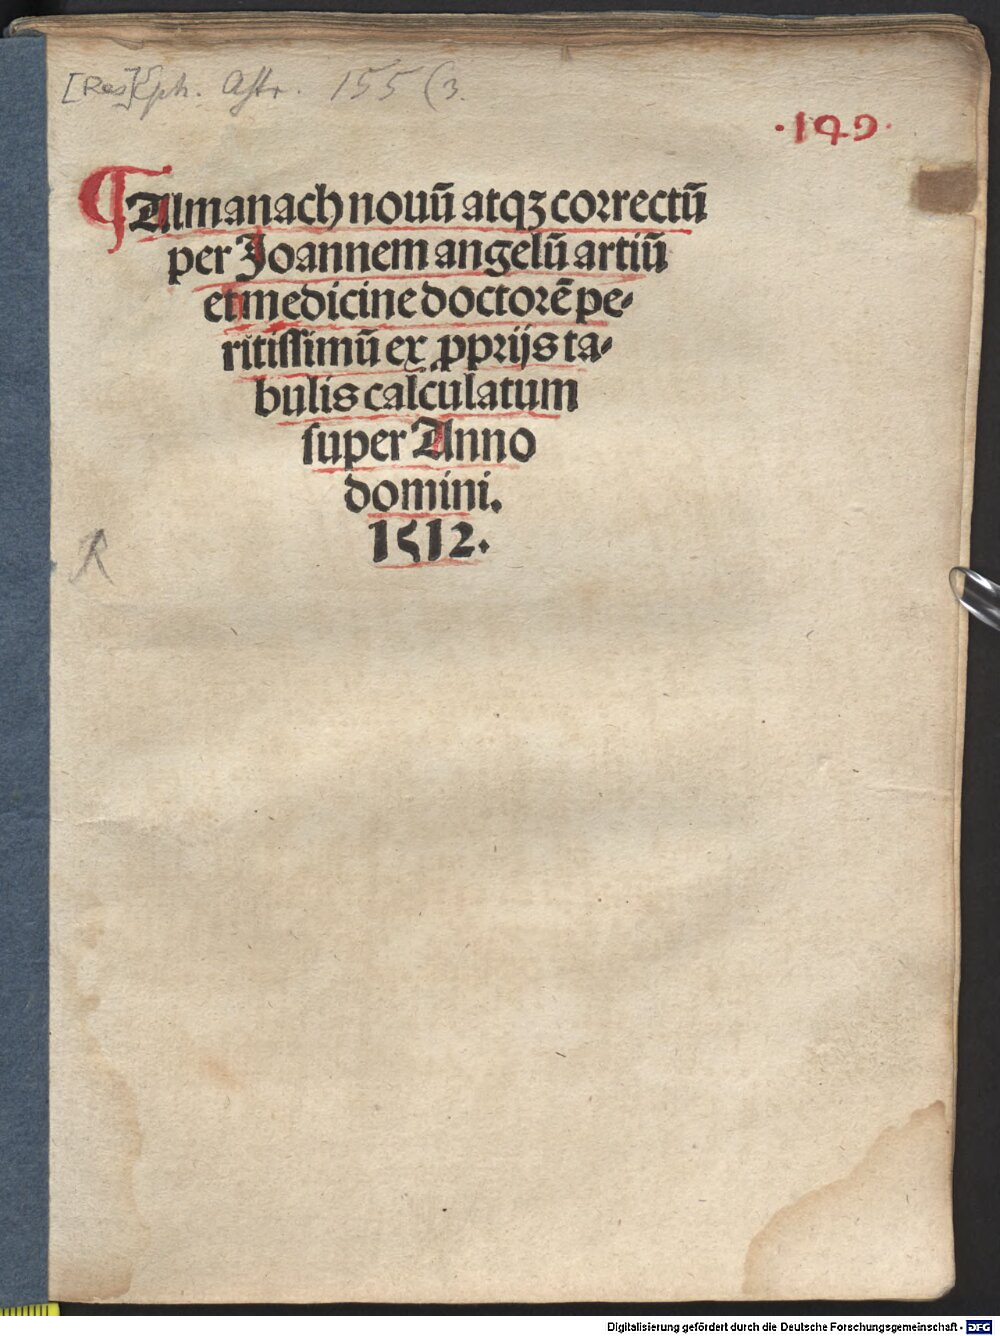 [Res] Eph. Astr. 155 (3.
·149·
¶Almanach nouū atqꝫ correctū
per Joannem angelū artiū
et medicine doctorē pe⸗
ritissimū ex ꝓprijs ta⸗
bulis calculatum
super Anno
domini.
1512.
R
Digitalisierung gefördert durch die Deutsche Forschungsgemeinschaft - DFG